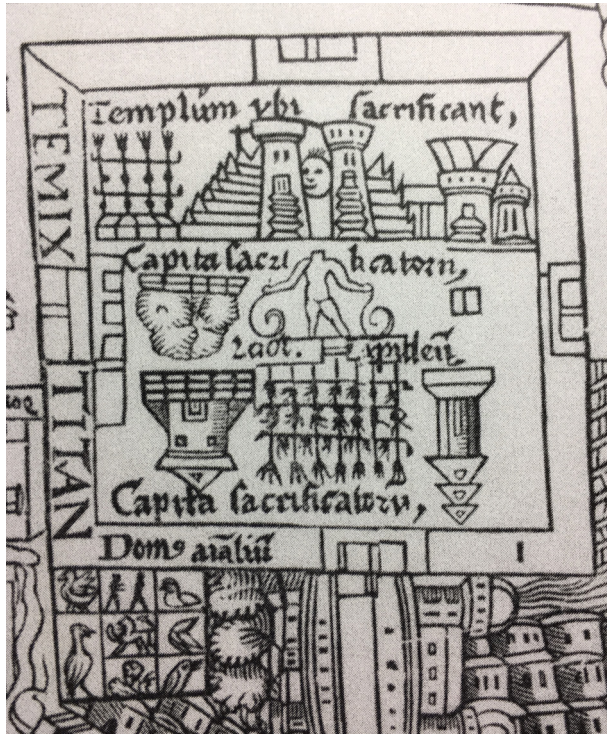 TEMIX
Templum ubi sacrificant,
Capita sacrificatorū,
TITAN
Capita sacrificatorū,
Dom⁹ aīaliū